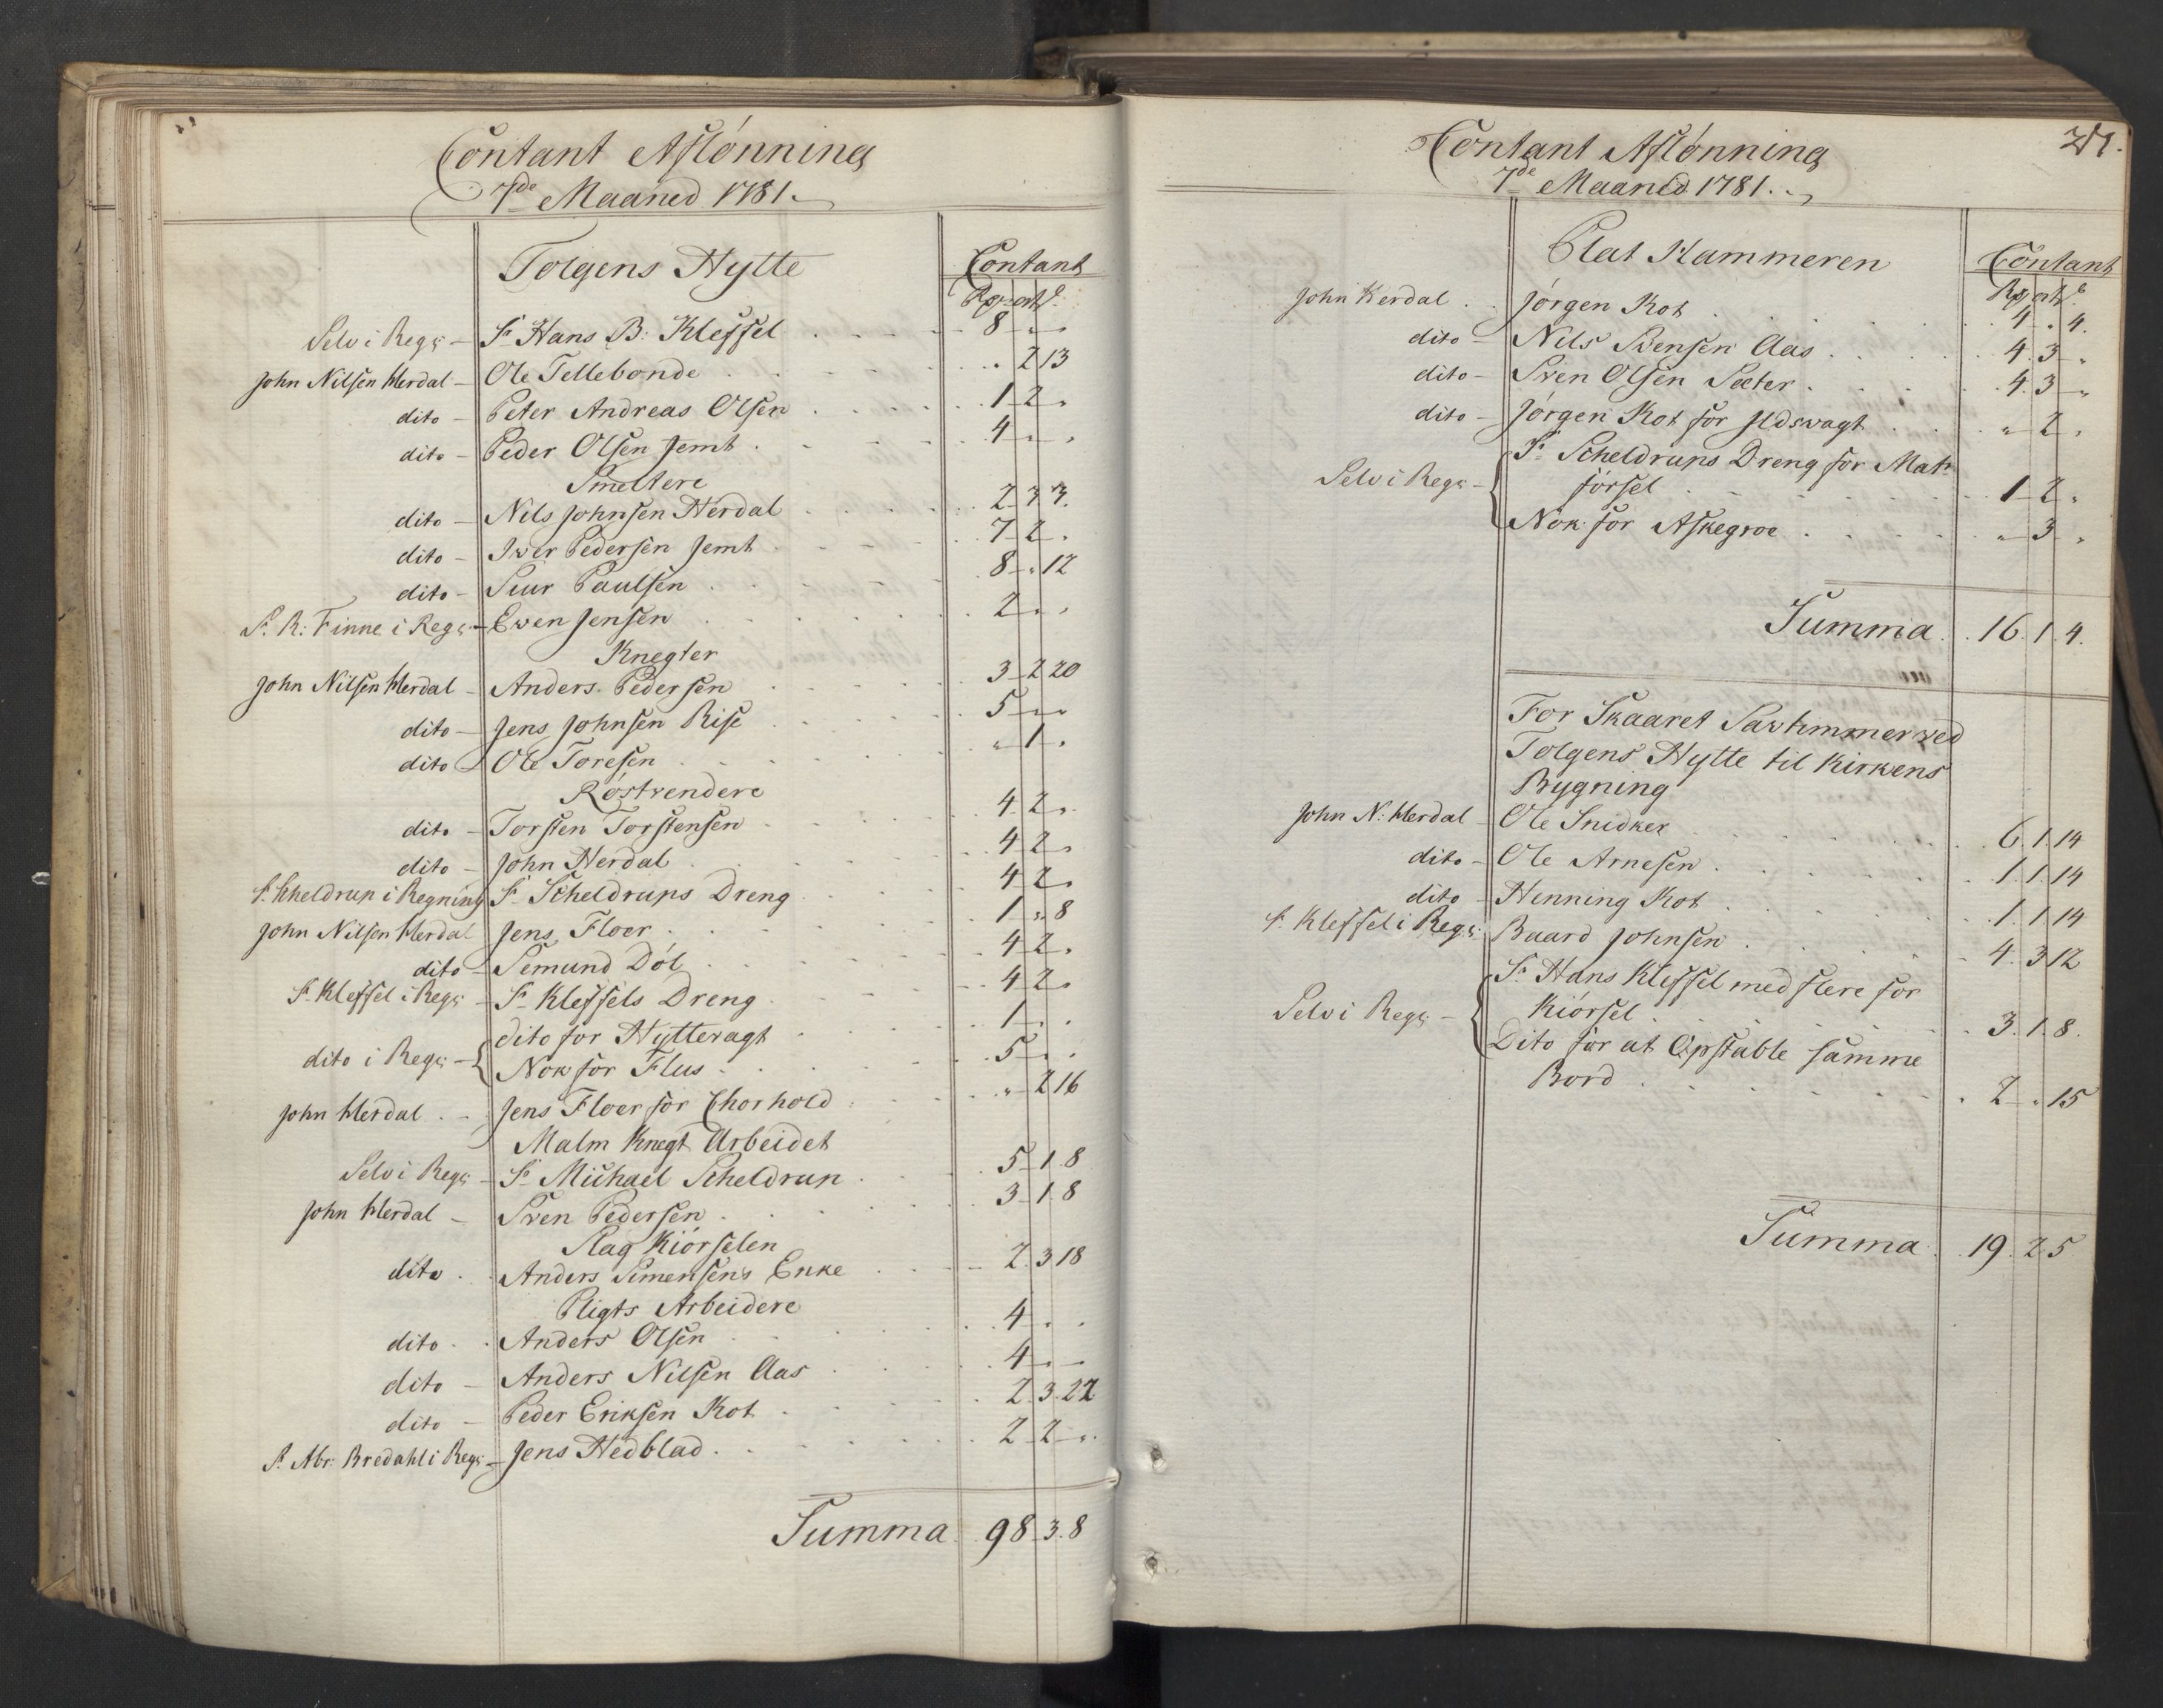 Contant Aflónning
7de Maaned 1781.
Tolgens Hytte Contant
Rdr ort s.
Selv i Regg - Sr Hans B: Kleffel 8 " "
John Nilsen Herdal - Ole Tellebonde " 2 13
dito - Peter Andreas Olsen 1 2 "
dito - Peder Olsen Jemt 4 " "
Smeltere
dito - Nils Johnsen Herdal 2 3 3.
dito - Iver Pedersen Jemt 7 2 "
dito - Siur Paulsen 8 " 12
Sr. R: Finne i Regg - Even Jensen 2 " "
Knegter
John Nilsen Herdal - Anders Pedersen 3 2 20
dito - Jens Johnsen Rise 5 " "
dito - Ole Toresen " 1 "
Róstvendere
dito - Torsten Torstensen 4 2 "
dito - John Herdal 4 2 "
Sr. Scheldrup i Regning Sr Scheldrups Dreng 4 2 "
John Nilsen Herdal Jens Floer 1 " 8
dito - Semund Dól 4 2 "
Sr. Kleffel i Regg - Sr Kleffels Dreng 4 2 "
dito for Hyttevagt 1 " "
dito i Regg - { Nok for Flus 5 " "
John Herdal - Jens Floer for Chorhold " 2 16
Malm Knegt Arbeidet
Selv i Regg - Sr Michael Scheldrup 5 1 8
John Herdal - Sven Pedersen 3 1 8
Slag Kiórselen
dito - Anders Simensens Enke 2 3 18
Pligts Arbeidere
dito - Anders Olsen 4 " "
dito - Anders Nilsen Aas 4 " "
dito - Peder Eriksen Kot 2 3 22
Sr. Abr: Bredahl i Regg - Jens Hedblad 2 2 "
Summa 98 3 8
Contant Aflónning 271.
7de Maaned 1781.
Plat Hammeren Contant
Rdr ort s.
John Herdal Jórgen Kot 4 " 4.
dito - Nils Svensen Aas 4 3 "
dito - Sven Olsen Sæter 4 3 "
dito - Jórgen Kot for Ildsvagt " 2 "
Sr Scheldrups Dreng for Matr
Selv i Regg - { fórsel 1 2 "
Nok for Askegroe " 3 "
Summa 16 1 4.
For Skaaret Savtimmer ved
Tolgens Hytte til Kirkens
Bygning
John N: Herdal - Ole Snidker 6 1 14
dito - Ole Arnesen 1 1 14
dito - Henning Kot 1 1 14
Sr. Kleffel i Regg: Baard Johnsen 4 3 12
Sr. Hans Kleffel med flere for
Selv i Regg - { Kiórsel 3 1 8.
Dito for at Opstable samme
Bord 2 " 15
Summa 19 2 5